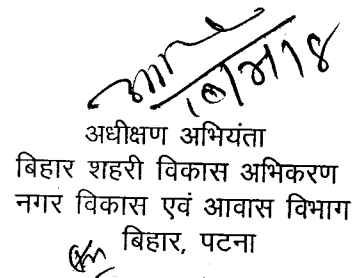 अधीक्षण अभियंता
बिहार शहरी विकास अभिकरण
नगर विकास एवं आवास विभाग
बिहार, पटना